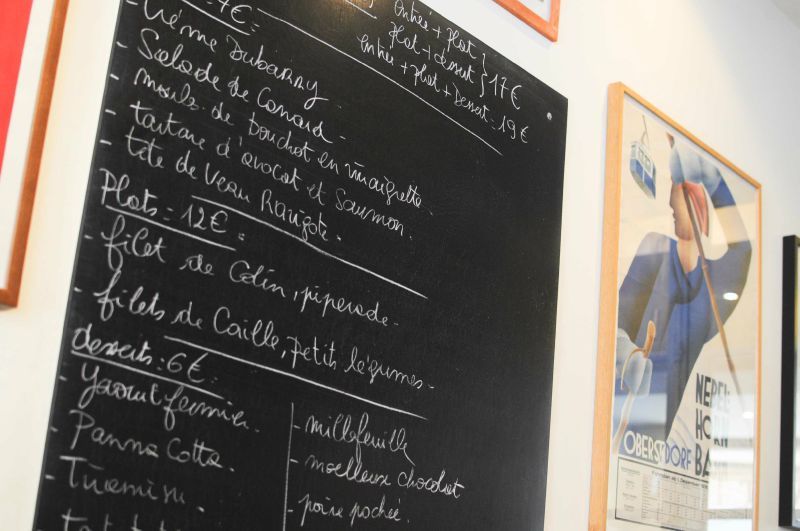 7€ =
- Crème Dubarry
- Salade de Canard -
- moule de bouchot en vinaigrette.
- tartare d'avocat et Saumon.
- tête de Veau Ravigote.
Entrée + Plat
Plat + dessert } 17€
entrée + plat + Dessert = 19€
Plats = 12€ =
- filet de Colin, piperade -
- filets de Caille, petits légumes -
desserts : 6€ =
- Yaourt fermier.
- Panna Cotta.
- Tiramisu.
- millefeuille
- moelleux chocolat
- poire pochée.
NEBEL
HORN
BA
OBERSTDORF